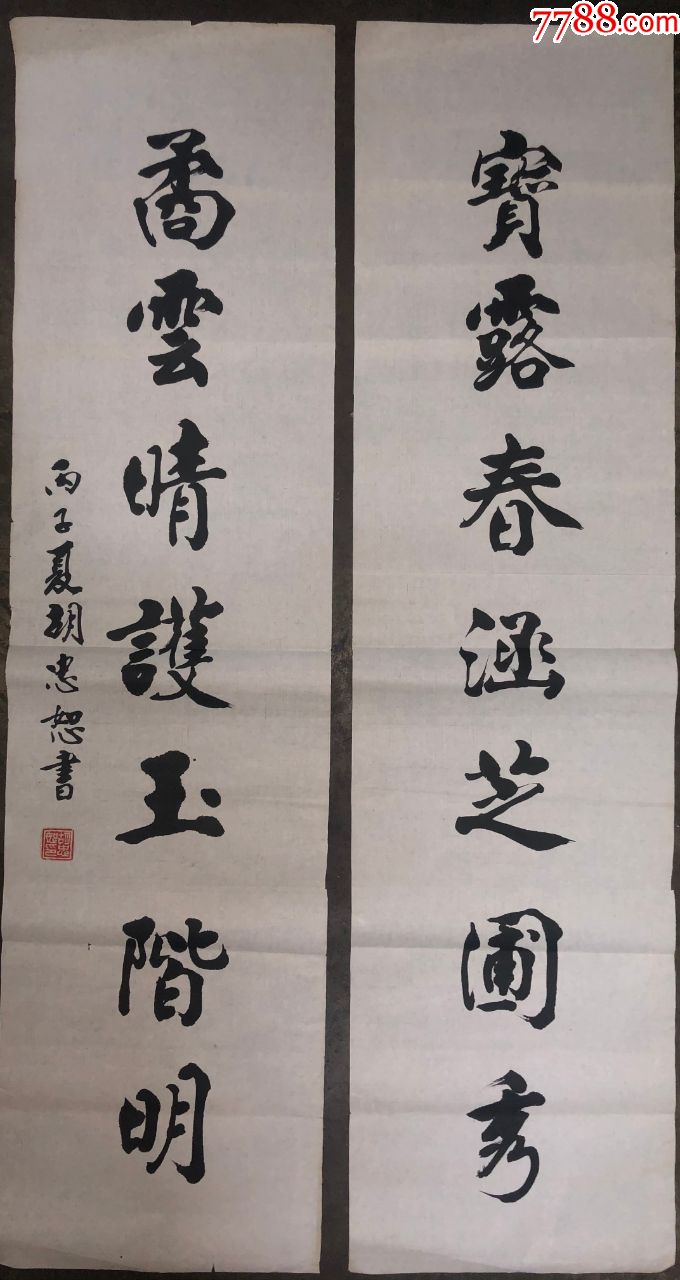 寶露春涵芝圃秀
矞雲晴護玉階明
丙子夏胡忠恕書
7788.com